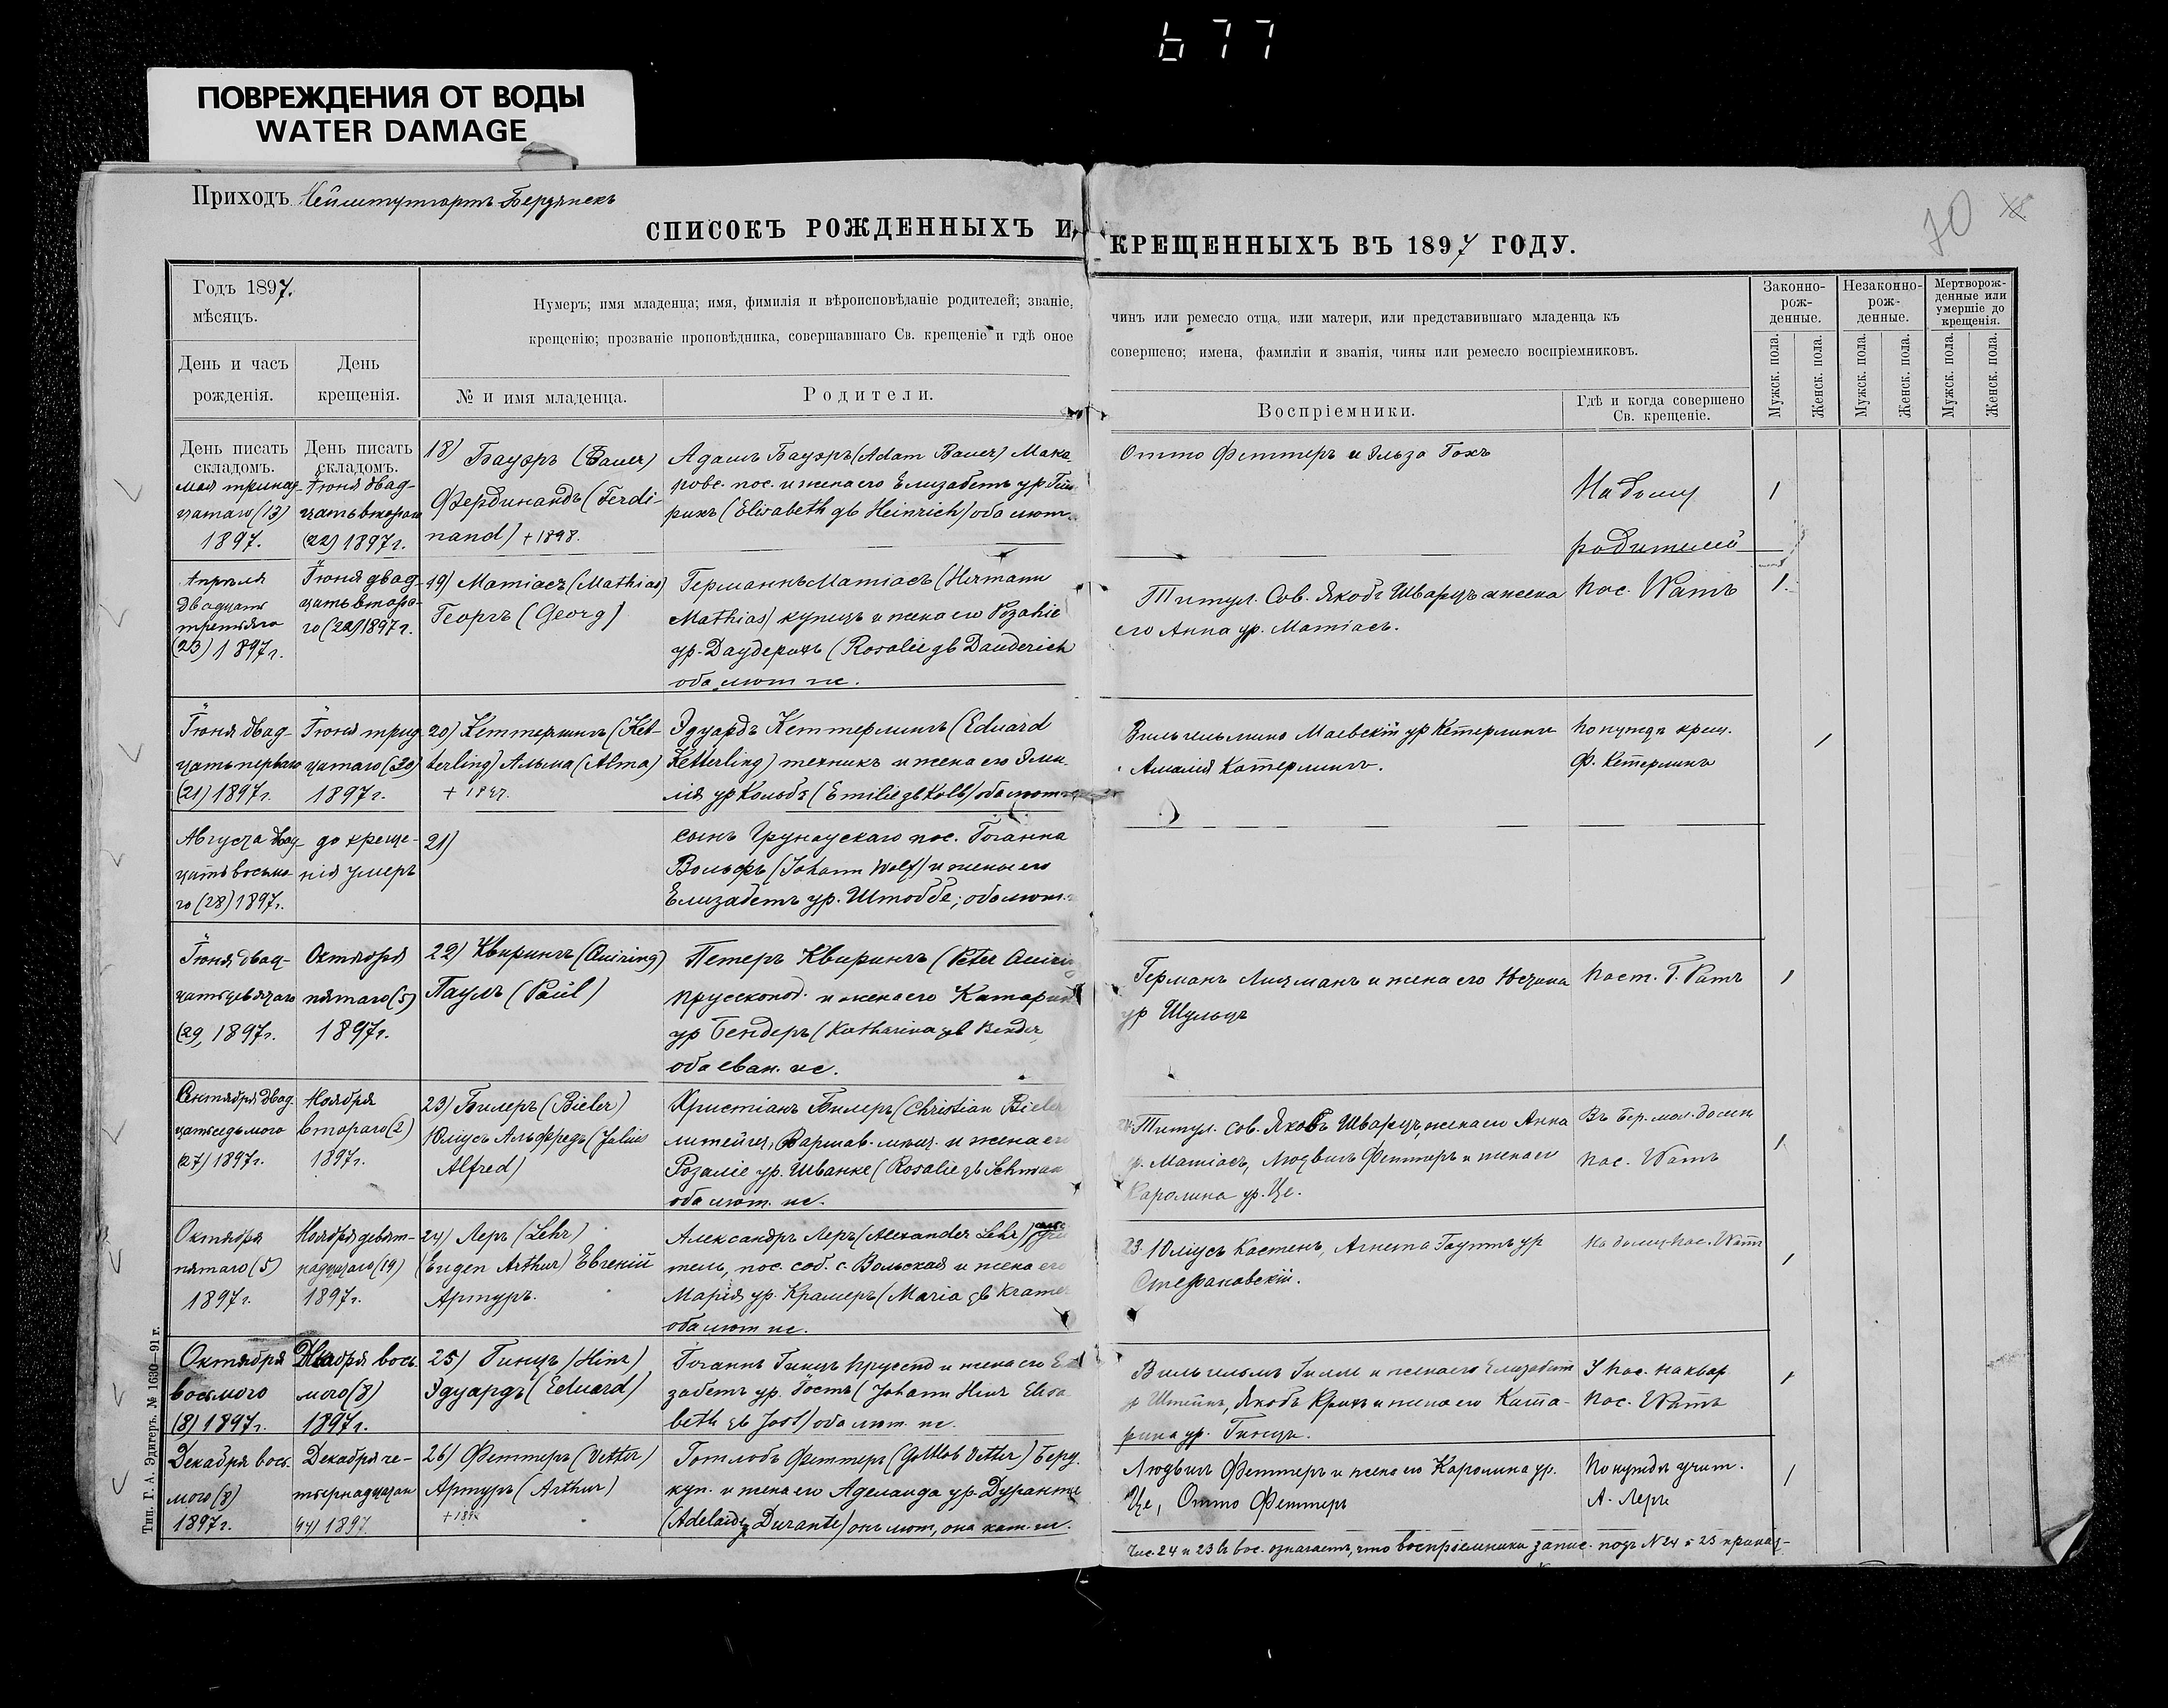 677
ПОВРЕЖДЕНИЯ ОТ ВОДЫ
WATER DAMAGE
Приходъ Нейштутгартъ-Бердянскъ
СПИСОКЪ РОЖДЕННЫХЪ И КРЕЩЕННЫХЪ ВЪ 1897 ГОДУ.
70
Годъ 1897.
мѣсяцъ.
День и часъ
рожденія.
День
крещенія.
Нумеръ; имя младенца; имя, фимилія и вѣроисповѣданіе родителей; званіе,
крещенію; прозваніе проповѣдника, совершавшаго Св. крещеніе и гдѣ оное
№ и имя младенца.
Родители.
чинъ или ремесло отца, или матери, или представившаго младенца къ
совершено; имена, фамиліи и званія, чины или ремесло воспріемниковъ.
Воспріемники.
Гдѣ и когда совершено
Св. крещеніе.
Законно-
рож-
денные.
Незаконно-
рож-
денные.
Мертворож-
денные или
умершіе до
крещенія.
Мужск. пола.
Женск. пола.
Мужск. пола.
Женск. пола.
Мужск. пола.
Женск. пола.
День писать
складомъ.
мая тринад-
цатаго (13)
1897.
День писать
складомъ.
Іюня двад-
цать втораго
(22) 1897 г.
18) Бауэръ (Bauer)
Фердинандъ (Ferdi-
nand) +1898.
Адамъ Бауэръ (Adam Bauer) Мака-
ровс. пос. и жена его Елизабетъ ур Гин
рихъ (Elisabeth gb Heinrich) оба лют.
Отто Феттеръ и Эльза Гохъ
На дому
родителей
1
Апрѣля
двадцать
третьяго
(23) 1897 г.
Іюня двад-
цать втора-
го (22) 1897 г.
19) Матіасъ (Mathias)
Георгъ (Georg)
Германнъ Матіасъ (Hermann
Mathias) купецъ и жена его Розаліе
ур. Даудерихъ (Rosalie gb Dauderich
оба лют ис.
Титул. Сов. Якобъ Шварцъ и жена
его Анна ур. Матіасъ.
пос. Wатъ
1.
Іюня двад-
цать перваго
(21) 1897 г.
Іюня трид
цатаго (30)
1897 г.
20) Кеттерлингъ (Ket-
terling) Альма (Alma)
+ 1897.
Эдуардъ Кеттерлингъ (Eduard
Ketterling) техникъ и жена его Эми-
лія ур Кольбъ (Emilie gb Kolb) оба лют
Вильгельмина Маевскій ур Кетерлингъ
Амалія Кетерлингъ.
по нуждѣ крещ.
Ф. Кетерлингъ
1
Августа двад-
цать восьма-
го (28) 1897 г.
до креще-
нія умеръ
21)
сынъ Грунаускаго пос. Іоганна
Вольфъ (Johann Wolf) и жены его
Елизабетъ ур. Штоббе; оба лют.
Іюня двад-
цать девятаго
(29, 1897 г.
Октября
пятаго (5)
1897 г.
22) Квирингъ (Quiring)
Паулъ (Paul)
Петеръ Квирингъ (Peter Quiring
прусскопод. и жена его Катарин
ур Бендеръ (Katharina gb Bender
оба еван. ис.
Германъ Лицманъ и жена его Юстина
ур Шульцъ
паст. Г. Ратъ
1
Сентября двад.
цать седьмого
(27) 1897 г.
Ноября
втораго (2)
1897 г.
23) Билеръ (Bieler)
Юліусъ Альфредъ (Julius
Alfred)
Христіанъ Билеръ (Christian Bieler
литейщ, Варшав. мѣщ. и жена его
Розаліе ур. Шванке (Rosalie gb Schwan
оба лют. ис.
24. Титул. сов. Якобъ Шварцъ, жена его Анна
ур. Матіасъ, Людвигъ Феттеръ и жена его
Каролина ур. Це.
Въ Бер. мол. домѣ
пас. Wатъ
1
Октября
пятаго (5)
1897 г.
Ноября девят-
надцатаго (19)
1897 г.
24) Леръ (Lehr)
(Eugen Arthur) Евгеній
Артуръ.
Александръ Леръ (Alexander Lehr)
тель, пос. соб. с. Вольская и жена его
Марія ур. Крамеръ (Maria gb Kramer
оба лют ис.
23. Юліусъ Кастенъ, Агнета Гауптъ ур
Стефановскій.
на дому пас. Wатъ
1
Октября
восьмого
(8) 1897 г.
Ноября вось
мого (8)
1897 г.
25) Гинцъ (Hinz)
Эдуардъ (Eduard)
Іоганнъ Гинцъ пруспод и жена его Ели
забетъ ур. Іостъ (Johann Hinz Elisa
beth gb Jost) оба лют. ис.
Вильгельмъ Гилль и жена его Елизабетъ
ур Штейнъ, Якобъ Крихъ и жена его Ката-
рина ур. Гинцъ.
У пас. на квар
пас. Wатъ
1
Декабря вось-
мого (8)
1897 г.
Декабря че-
тырнадцатаго
(14) 1897
26) Феттеръ (Vetter)
Артуръ (Arthur)
+ 189
Готлобъ Феттеръ (Gottlob Vetter) Берд.
куп. и жена его Аделаида ур. Дуранте
(Adelaide Durante) онъ лют, она кат. ис.
Людвигъ Феттеръ и жена его Каролина ур.
Це, Отто Феттеръ
По нуждѣ учит.
А. Леръ
1
Чис. 24 и 23 въ вос. означаетъ, что воспріемники запис. подъ N 24 и 23 принад-
Тип. Г. А. Эдигеръ. № 1630—91 г.